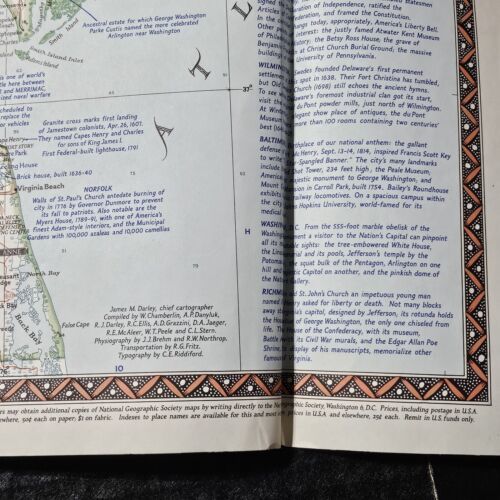 Ancestral estate for which George Washington
Parke Custis named the more celebrated
Arlington near Washington
South Island Inlet
South Island
is one of world's
tle here between
and MERRIMAC,
ized naval warfare
cheduled to
replace the
or vehicles
Granite cross marks first landing
of Jamestown colonists, Apr. 26, 1607.
They named Capes Henry and Charles
for sons of King James I.
First Federal-built lighthouse, 1791
Brick house, built 1636-40
Virginia Beach
NORFOLK
Walls of St. Paul's Church antedate burning of
city in 1776 by Governor Dunmore to prevent
its fall to patriots. Also notable are the
Myers House, 1789-91, with one of America's
finest Adam-style interiors, and the Municipal
Gardens with 100,000 azaleas and 10,000 camellias
North Bay
Back Bay
False Cape
James M. Darley, chief cartographer
Compiled by W. Chamberlin, A.P. Danyluk,
R.J. Darley, R.C. Ellis, A.D. Grazzini, D.A. Jaeger,
R.E. McAleer, W.T. Peele and C.L. Stern.
Physiography by J.J. Brehm and R.W. Northrop.
Transportation by R.G. Fritz.
Typography by C.E. Riddiford.
10
A
T
L
37°
H
signed the
Articles
of Independence, ratified the
federation, and framed the Constitution.
changed today, appropriately. America's Liberty Bell.
interest: the justly famed Atwater Kent Museum
history, the Betsy Ross House, the grave of
at Christ Church Burial Ground, the massive
University of Pennsylvania.
WILMIN
Swedes founded Delaware's first permanent
spot in 1638. Their Fort Christina has tumbled,
Church (1698) still echoes the ancient hymns.
Delaware's foremost industrial clan got its start,
du Pont powder mills, just north of Wilmington.
elegant show place of antiques, the du Pont
more than 100 rooms containing two centuries'
BALTIM
birthplace of our national anthem: the gallant
McHenry, Sept. 13-14, 1814, inspired Francis Scott Key
"Star-Spangled Banner." The city's many landmarks
Shot Tower, 234 feet high, the Peale Museum,
majestic monument to George Washington, and
Mansion in Carroll Park, built 1754. Bailey's Roundhouse
railway locomotives. On a spacious campus within
Hopkins University, world-famed for its
medical
WASHING D.C. From the 555-foot marble obelisk of the
monument a visitor to the Nation's Capital can pinpoint
all its notable sights: the tree-embowered White House,
the Memorial and its pools, Jefferson's temple by the
Potomac, the squat bulk of the Pentagon, Arlington on one
hill and the majestic Capitol on another, and the pinkish dome of
the National Gallery.
RICHM St. John's Church an impetuous young man
named asked for liberty or death. Not many blocks
away Virginia's capitol, designed by Jefferson, its rotunda holds
the Houdon of George Washington, the only one chiseled from
life. The House of the Confederacy, with its museum,
Battle with its Civil War murals, and the Edgar Allan Poe
Shrine display of his manuscripts, memorialize other
famous of Virginia.
ers may obtain additional copies of National Geographic Society maps by writing directly to the National Geographic Society, Washington 6, D.C. Prices, including postage in U.S.A.
ewhere, 50¢ each on paper; $1 on fabric. Indexes to place names are available for this and most prices in U.S.A. and elsewhere, 25¢ each. Remit in U.S. funds only.